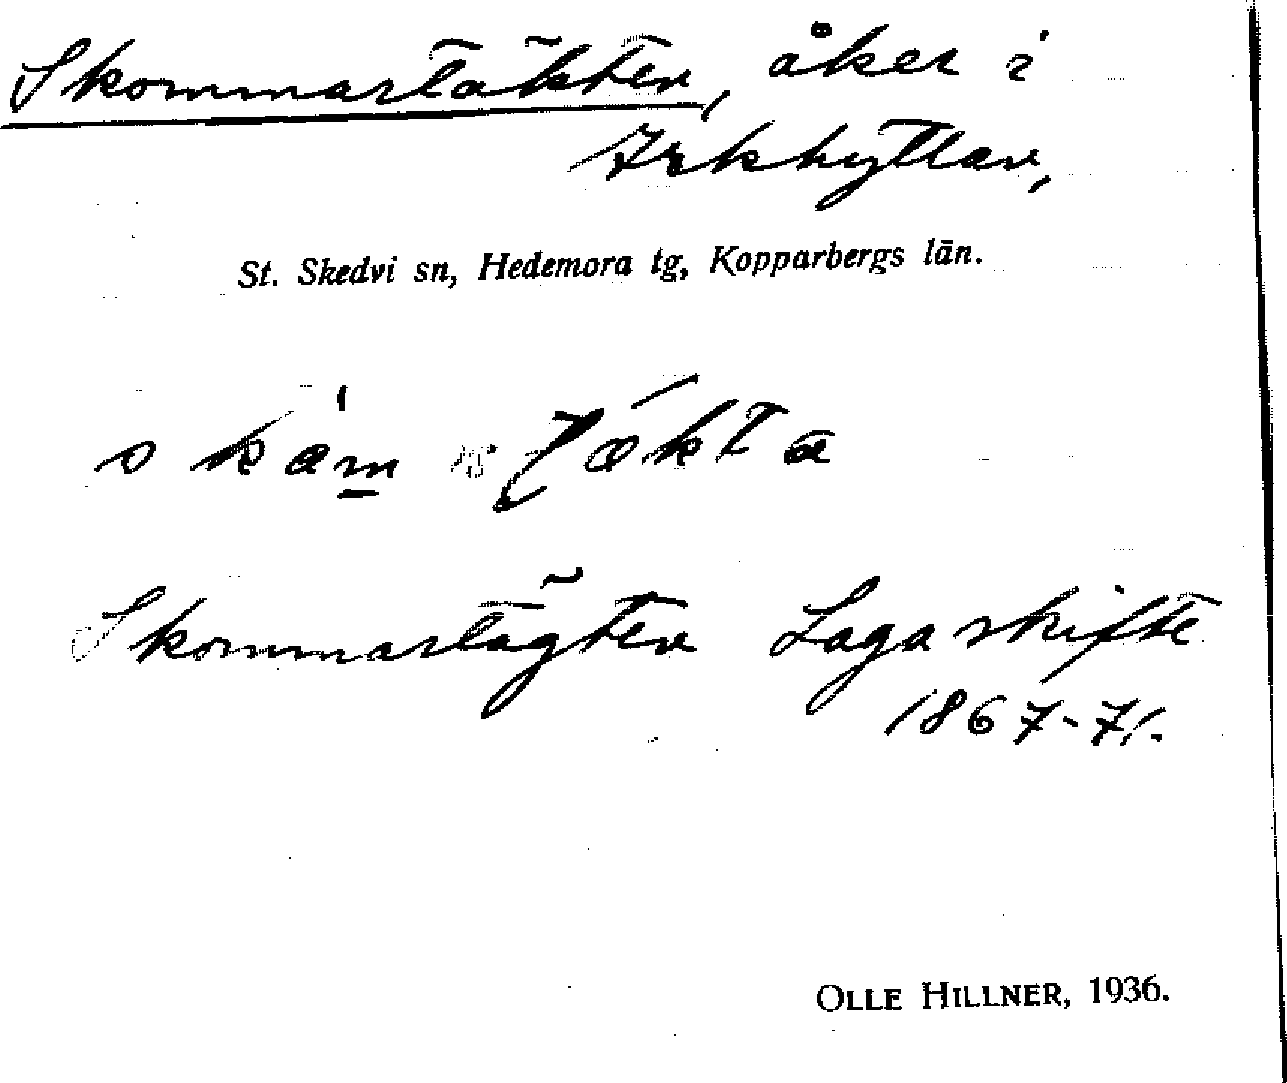 Skommartäkten, åker i
Irkhyttan,
St. Skedvi sn, Hedemora tg, Kopparbergs län.
Skommartägten Laga skifte
1867-71.
OLLE HILLNER, 1936.